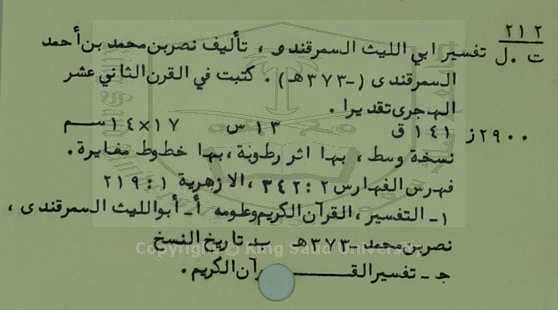 ٢١٢
ت ٠ ل تفسير ابي الليث السمرقندى ، تأليف نصربن محمد بن أحمد
السمرقندى (-٣٧٣هـ) ٠ كتبت في القرن الثاني عشر
الهجرى تقديرا ٠
١٤١ ق ١٣ س ١٧×١٤سم
٢٩٠٠ز
نسخة وسط ، بها اثر رطوبة ، بها خطوط مغايرة ٠
فهرس الفهارس ٢ : ٣٤٢ ، الازهرية ١ : ٢١٩
١ـ التفسير ، القرآن الكريم وعلومه أـ أبو الليث السمرقندى ،
نصربن محمد -٣٧٣هـ بـ تاريخ النسخ
جـ ـ تفسير القـرآن الكريم ٠
Copyright © King Saud University